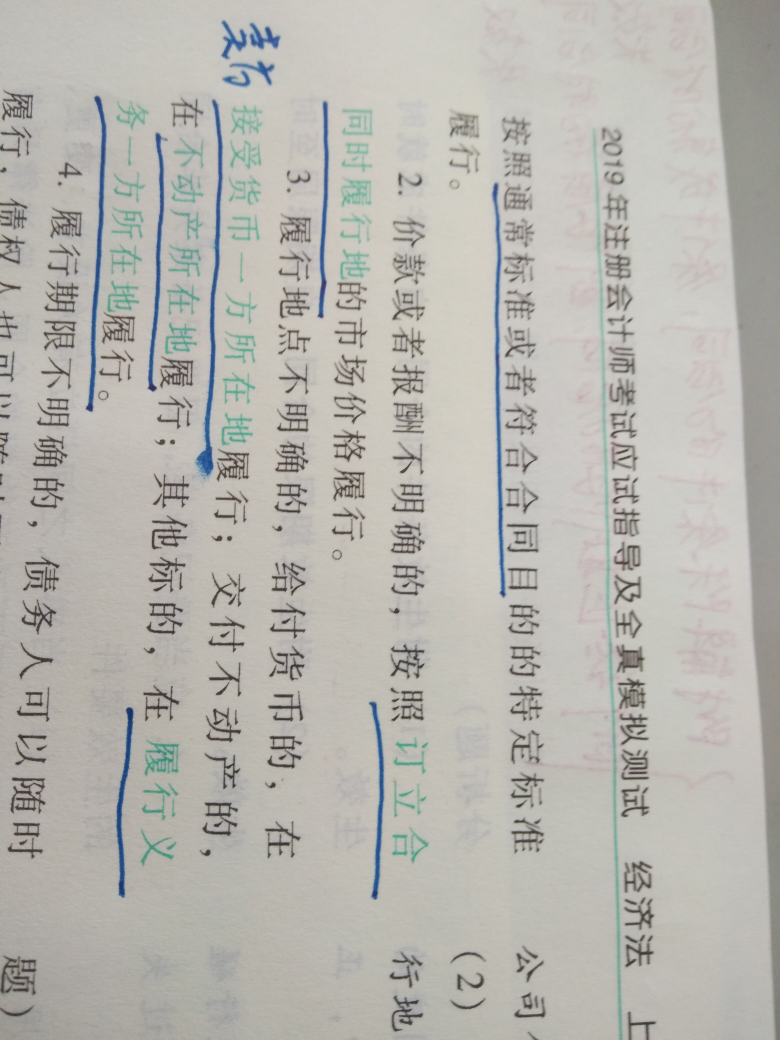 2019年注册会计师考试应试指导及全真模拟测试 经济法 上
按照通常标准或者符合合同目的的特定标准
履行。
2. 价款或者报酬不明确的，按照订立合
同时履行地的市场价格履行。
3. 履行地点不明确的，给付货币的，在
接受货币一方所在地履行；交付不动产的，
在不动产所在地履行；其他标的，在履行义
务一方所在地履行。
4. 履行期限不明确的，债务人可以随时
履行，债权人也可以随时
卖方
公司
（2）
行地
题）